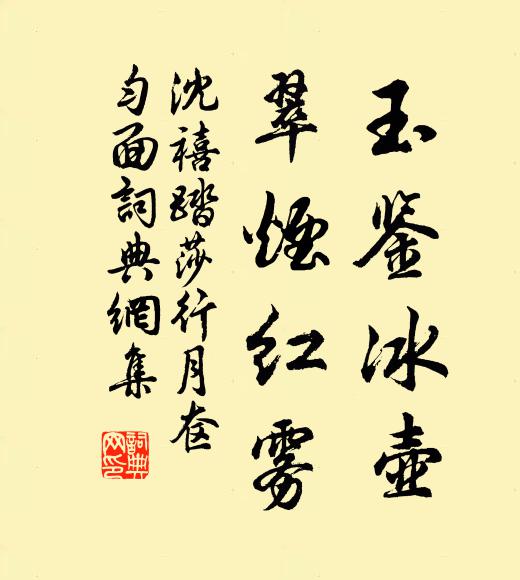 玉鉴冰壶
翠烟红雾
沈禧踏莎行月奁
匀面詞典網集
詞典网印